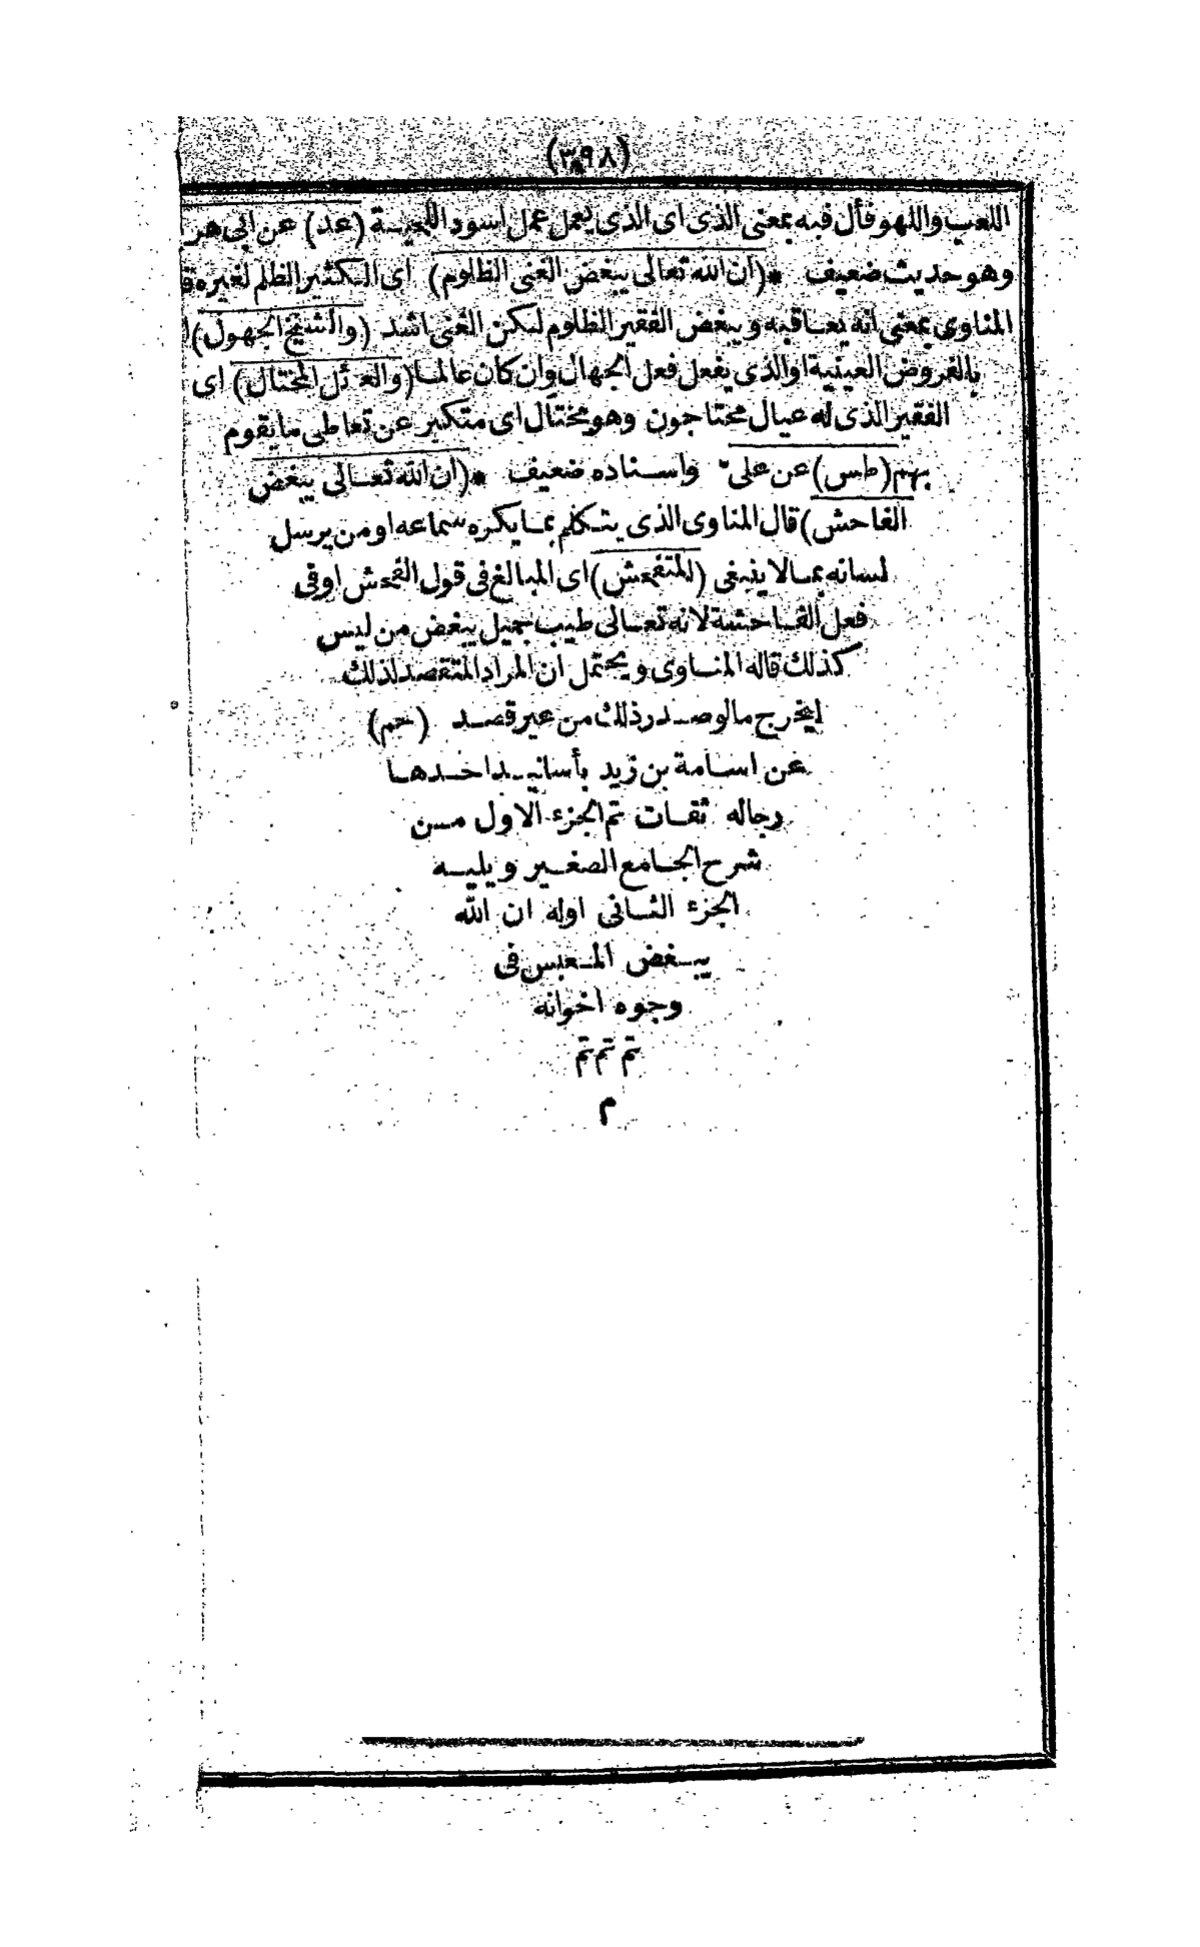 (٣٩٨)
اللعب واللهو فأل فيه بمعنى الذى اى الذى يعمل عمل اسود اللحية (عد) عن ابى هر
وهو حديث ضعيف * (ان الله تعالى يبغض الغنى الظلوم) اى الكثير الظلم لغيره ق
المناوى بمعنى انه يعاقبه ويبغض الفقير الظلوم لكن الغنى اشد (والشيخ الجهول) ا
بالفروض العينية او الذى يفعل فعل الجهال وان كان عالما (والعائل المختال) اى
الفقير الذى له عيال محتاجون وهو مختال اى متكبر عن تعاطى ما يقوم
بهم (طس) عن على واسناده ضعيف * (ان الله تعالى يبغض
الفاحش) قال المناوى الذى يتكلم بما يكره سماعه او من يرسل
لسانه بما لا ينبغى (المتفحش) اى المبالغ فى قول الفحش او فى
فعل الفاحشة لانه تعالى طيب جميل يبغض من ليس
كذلك قاله المناوى ويحتمل ان المراد المتقصد لذلك
ليخرج ما لو صدر ذلك من غير قصد (حم)
عن اسامة بن زيد بأسانيد احدها
رجاله ثقات تم الجزء الاول من
شرح الجامع الصغير ويليه
الجزء الثانى اوله ان الله
يبغض المعبس فى
وجوه اخوانه
تم تم تم
م